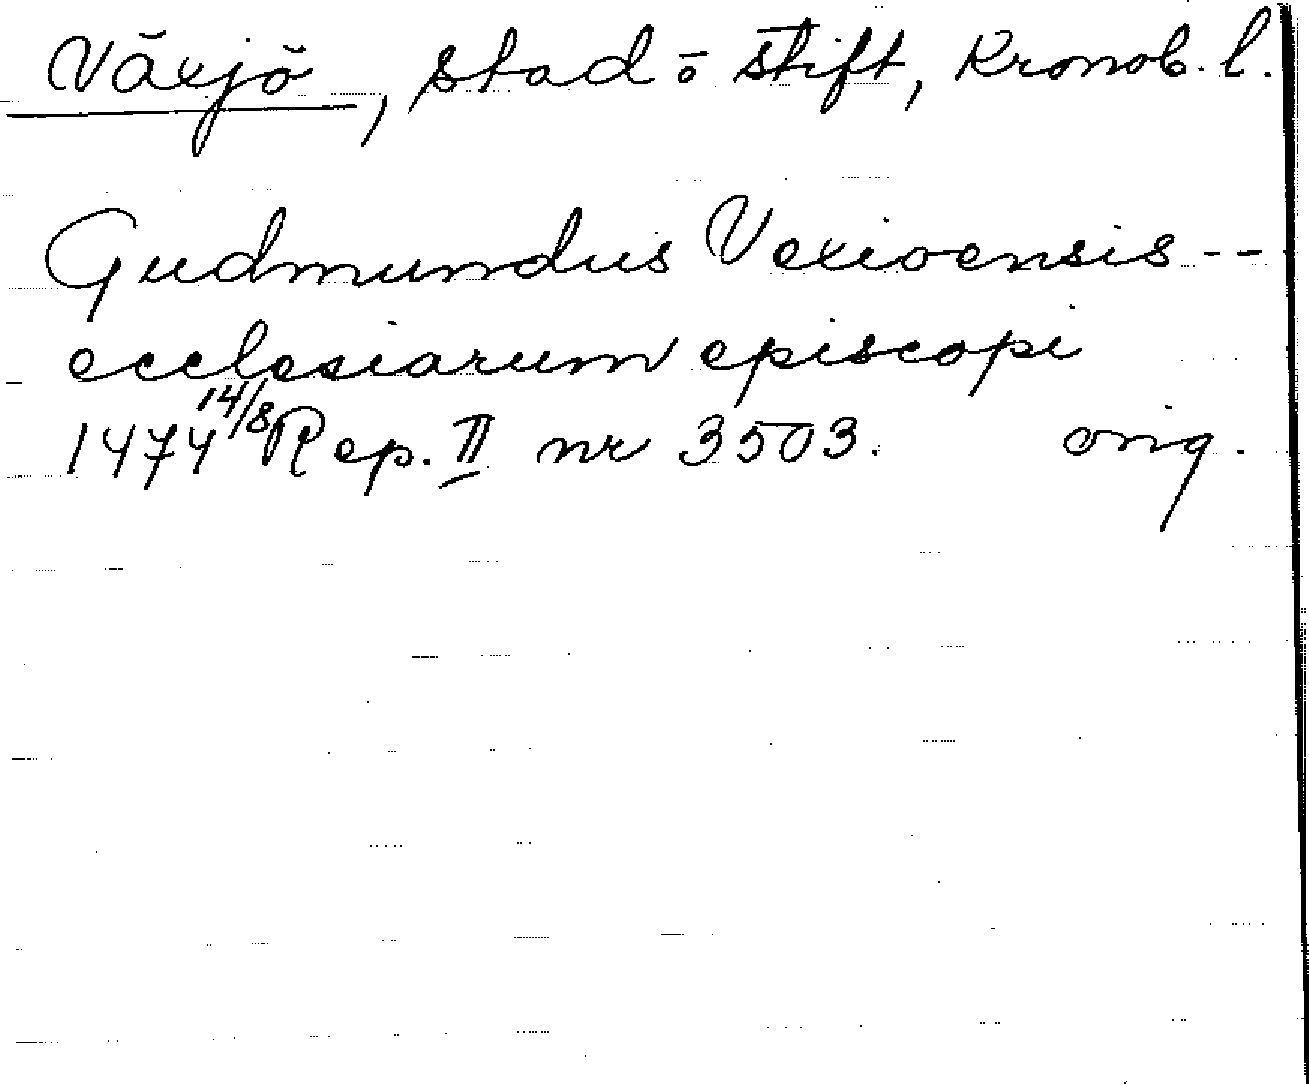 Växjö, stad o stift, Kronob. l.
Gudmundus Vexioensis --
ecclesiarum episcopi
1474 14/8 Rep. II nr 3503. orig.